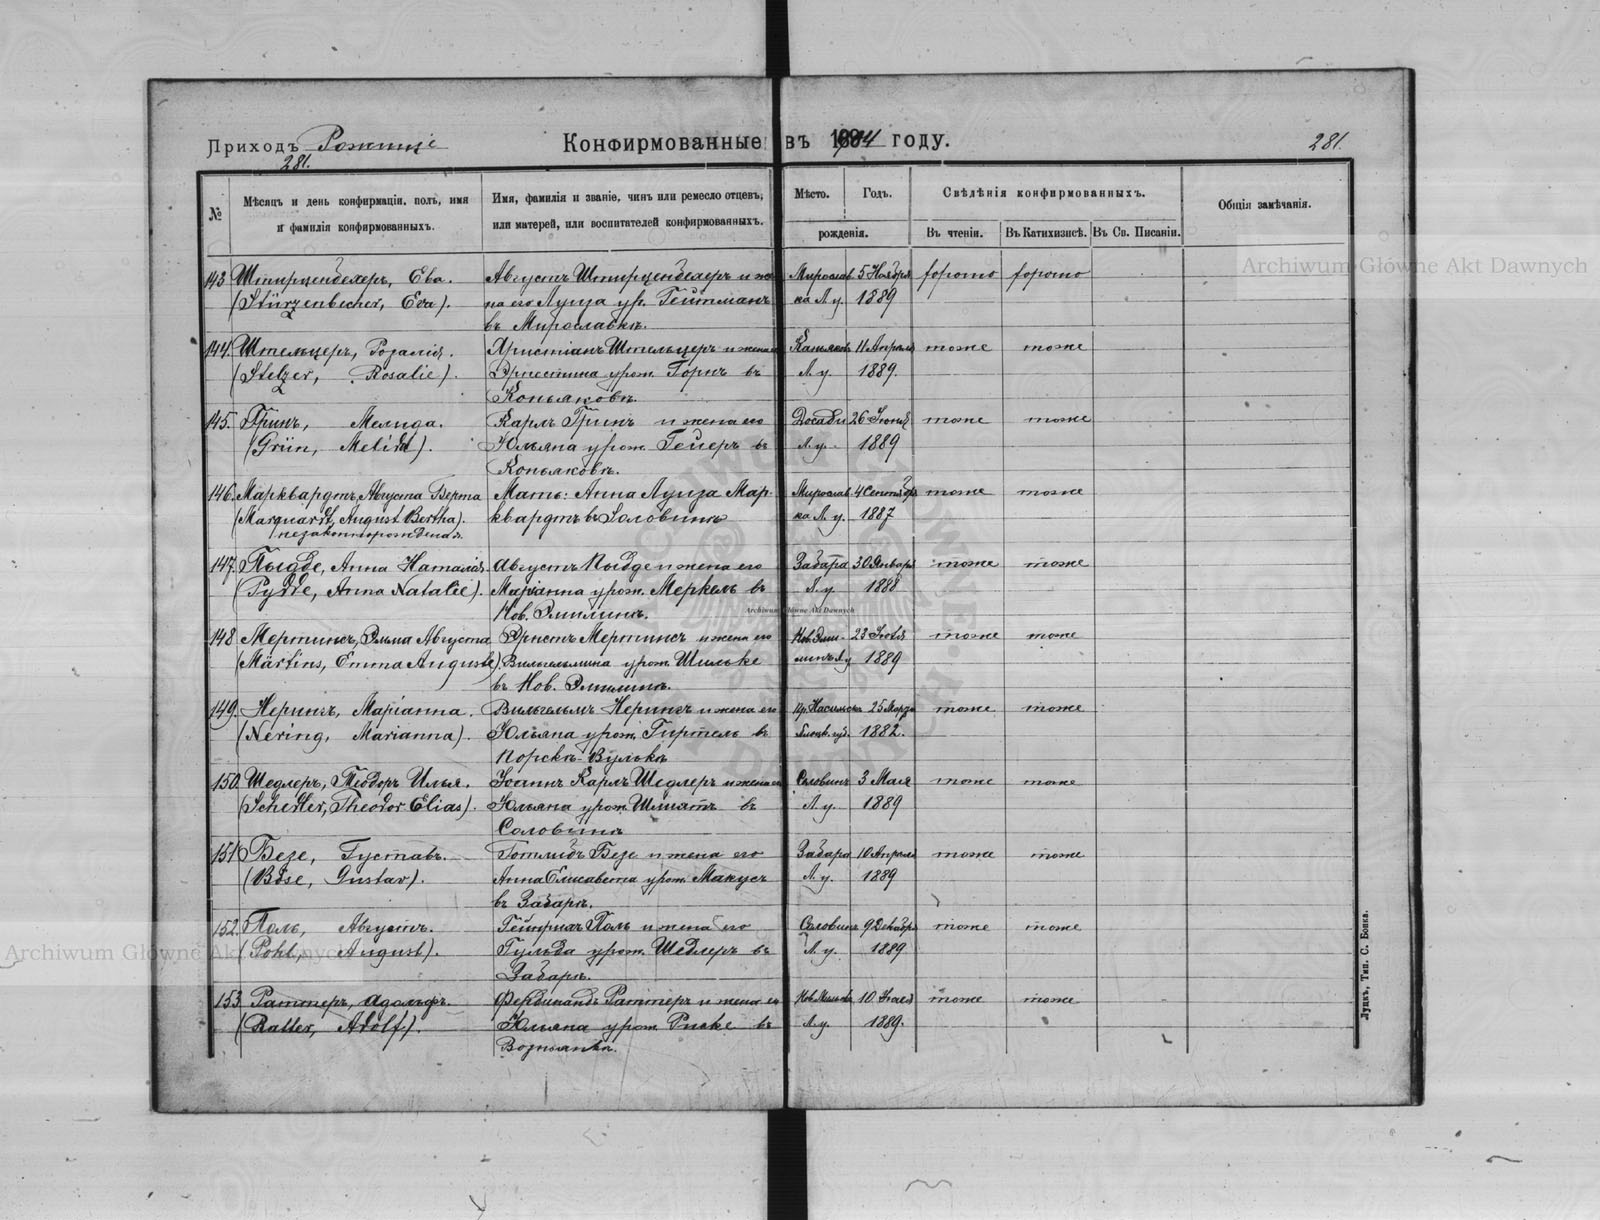 Приходъ Рожище
281.
Конфирмованные въ 1904 году.
281.
№
Мѣсяцъ и день конфирмаціи, полъ, имя
и фамилія конфирмованныхъ.
Имя, фамилія и званіе, чинъ или ремесло отцевъ,
или матерей, или воспитателей конфирмованныхъ.
Мѣсто.
Годъ.
рожденія.
Свѣдѣнія конфирмованныхъ.
Въ чтеніи.
Въ Катихизисѣ.
Въ Св. Писаніи.
Общія замѣчанія.
143 Штирценбехеръ, Ева. Августъ Штирценбехеръ и же- Мирослав 5 Ноября хорошо хорошо
(Stürzenbecher, Eva). на его Луиза ур. Гейтманъ ка Л. у. 1889
въ Миславкѣ.
144. Штельцеръ, Розалія. Христіанъ Штельцеръ и жена Копьяков 11 Апрѣля тоже тоже
(Stelzer, Rosalie). Эрнестина урож. Горнъ въ Л. у. 1889.
Копьяковкѣ.
145. Гринъ, Мелида. Карлъ Гринъ и жена его 26 Іюня тоже тоже
(Grün, Melida). Юльяна урож. Гейеръ въ Л. у. 1889
Копьяковкѣ.
146. Марквардтъ, Августа Берта Мать: Анна Луиза Мар- Мирослав 4 Сентября тоже тоже
(Marquardt, August Bertha). квардтъ въ Соловинѣ ка Л. у. 1887
незаконнорожденая.
147. Пыдде, Анна Наталія Августъ Пыдде и жена его Забара 30 Января тоже тоже
(Pydde, Anna Natalie). Маріанна урож. Меркель въ Л. у. 1888
Нов. Эмилинѣ.
148 Мертинсъ, Эмма Августа Эрнстъ Мертинсъ и жена его Нов. Эми- 23 Іюля тоже тоже
(Märtins, Emma Auguste). Вильгельмина урож. Шильке линъ Л. у. 1889
въ Нов. Эмилинѣ.
149. Нерингъ, Маріанна. Вильгельмъ Нерингъ и жена его 25 Марта тоже тоже
(Nering, Marianna). Юльяна урож. Гиртель въ 1882.
Порскѣ-Вулькѣ
150. Шедлеръ, Теодоръ Илья. Іоаннъ Карлъ Шедлеръ и жена его Соловинъ 3 Мая тоже тоже
(Schedler, Theodor Elias). Юльяна урож. Шмидтъ въ Л. у. 1889
Соловинѣ
151 Безе, Густавъ. Готлибъ Безе и жена его Забара 10 Апрѣля тоже тоже
(Böse, Gustav). Анна Елисавета урож. Макусъ Л. у. 1889
въ Забарѣ.
152. Поль, Августъ. Гейнрихъ Поль и жена его Соловинъ 9 Декабря тоже тоже
(Pohl, August). Гульда урож. Шедлеръ въ Л. у. 1889
Забарѣ.
153 Раттеръ, Адольфъ. Фердинандъ Раттеръ и жена его 10 Іюля тоже тоже
(Ratter, Adolf). Юльяна урож. Риske въ Л. у. 1889.
Вознянкѣ.
Луцкъ, Тип. С. Бонка.
Archiwum Główne Akt Dawnych
Archiwum Główne Akt Dawnych
Archiwum Główne Akt Dawnych